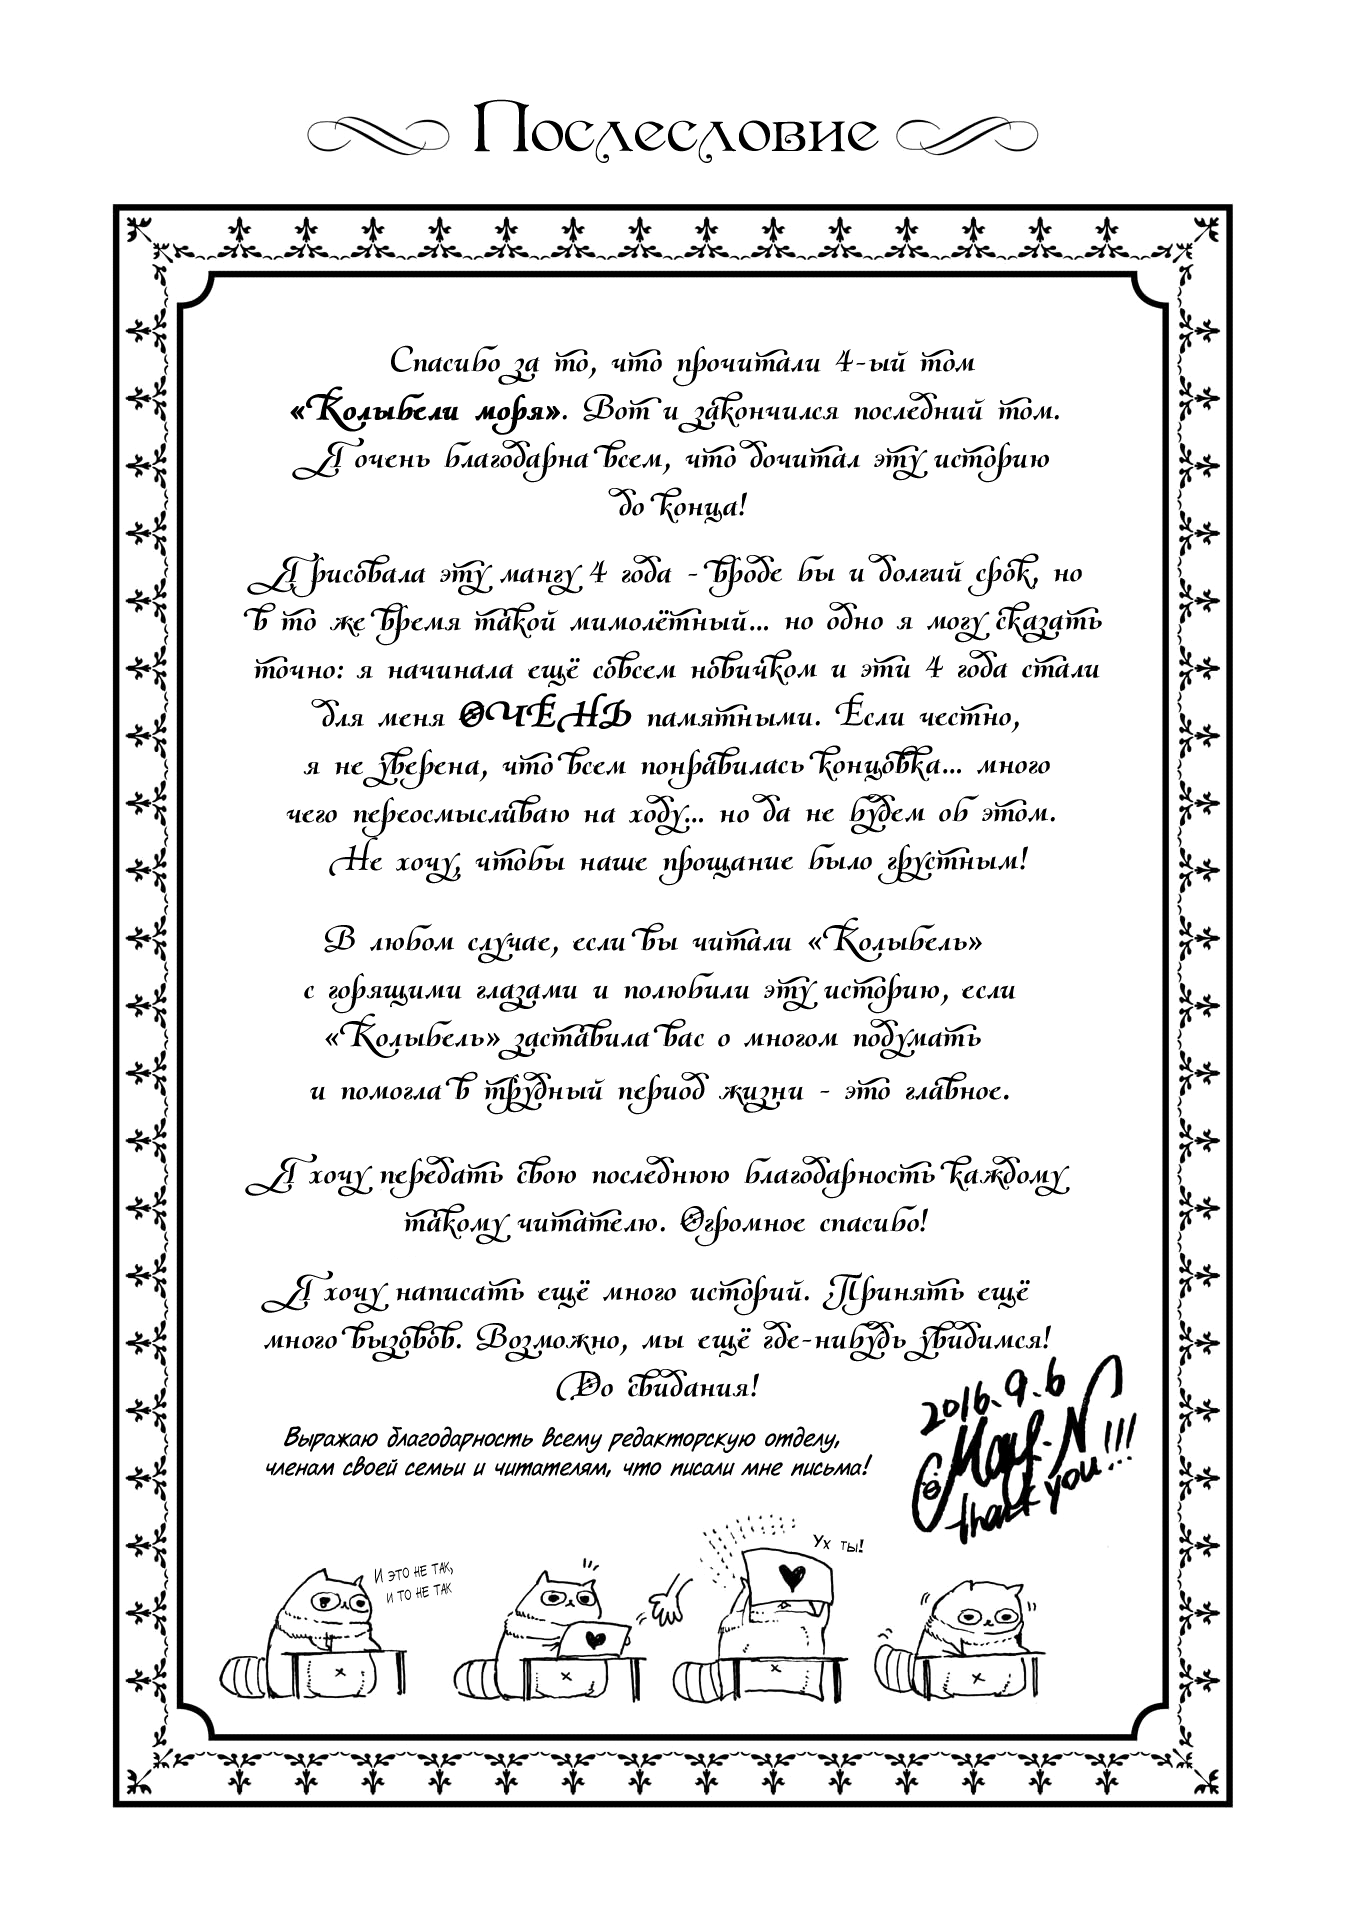 Послесловие
Спасибо за то, что прочитали 4-ый том
«Колыбели моря». Вот и закончился последний том.
Я очень благодарна всем, что дочитал эту историю
до конца!
Я рисовала эту мангу 4 года - вроде бы и долгий срок, но
в то же время такой мимолётный... но одно я могу сказать
точно: я начинала ещё совсем новичком и эти 4 года стали
для меня ОЧЕНЬ памятными. Если честно,
я не уверена, что всем понравилась концовка... много
чего переосмысливаю на ходу... но да не будем об этом.
Не хочу, чтобы наше прощание было грустным!
В любом случае, если вы читали «Колыбель»
с горящими глазами и полюбили эту историю, если
«Колыбель» заставила вас о многом подумать
и помогла в трудный период жизни - это главное.
Я хочу передать свою последнюю благодарность каждому
такому читателю. Огромное спасибо!
Я хочу написать ещё много историй. Принять ещё
много вызовов. Возможно, мы ещё где-нибудь увидимся!
До свидания!
2016.9.6
thank you!!!
Выражаю благодарность всему редакторскую отделу,
членам своей семьи и читателям, что писали мне письма!
И это не так,
и то не так
Ух ты!